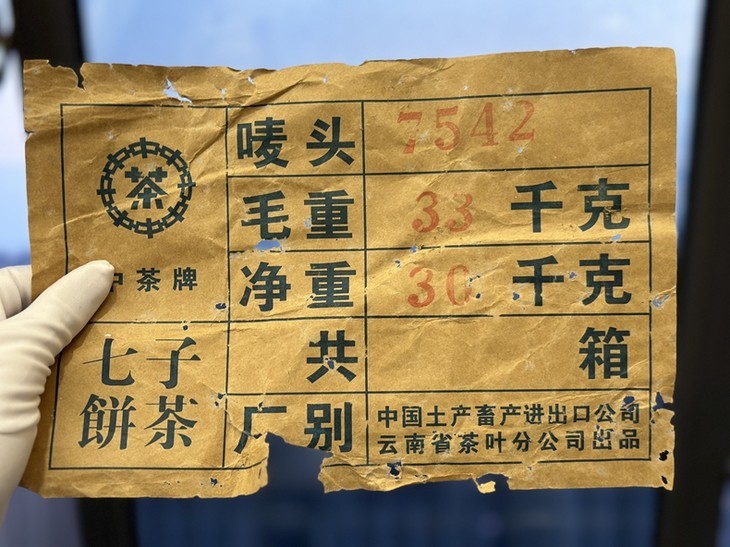 唛头 7542
茶
毛重 33 千克
中茶牌
净重 30 千克
七子
餅茶
共 箱
厂别 中国土产畜产进出口公司
云南省茶叶分公司出品